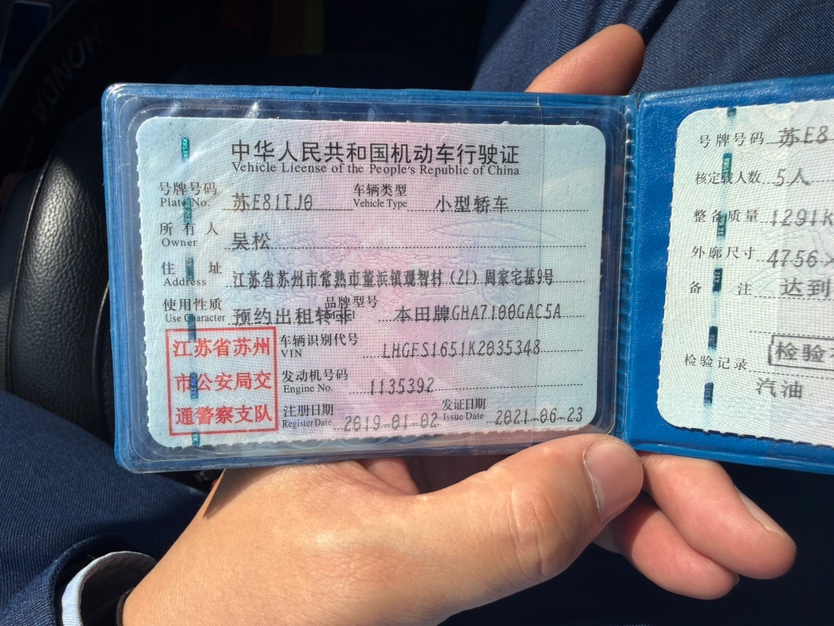 中华人民共和国机动车行驶证
Vehicle License of the People's Republic of China
号牌号码 苏E81TJ0 车辆类型 小型轿车
Plate No. Vehicle Type
所有人 吴松
Owner
住址 江苏省苏州市常熟市董浜镇观智村(21)周家宅基9号
Address
使用性质 预约出租转非 品牌型号 本田牌GHA7100GAC5A
Use Character
江苏省苏州
市公安局交
通警察支队
车辆识别代号 LHGFS1651K2035348
VIN
发动机号码 1135392
Engine No.
注册日期 2019-01-02 发证日期 2021-06-23
Register Date Issue Date
号牌号码 苏E8
核定载人数 5人
整备质量 1291K
外廓尺寸 4756×
备注 达到
检验记录 检验
汽油
HONDA